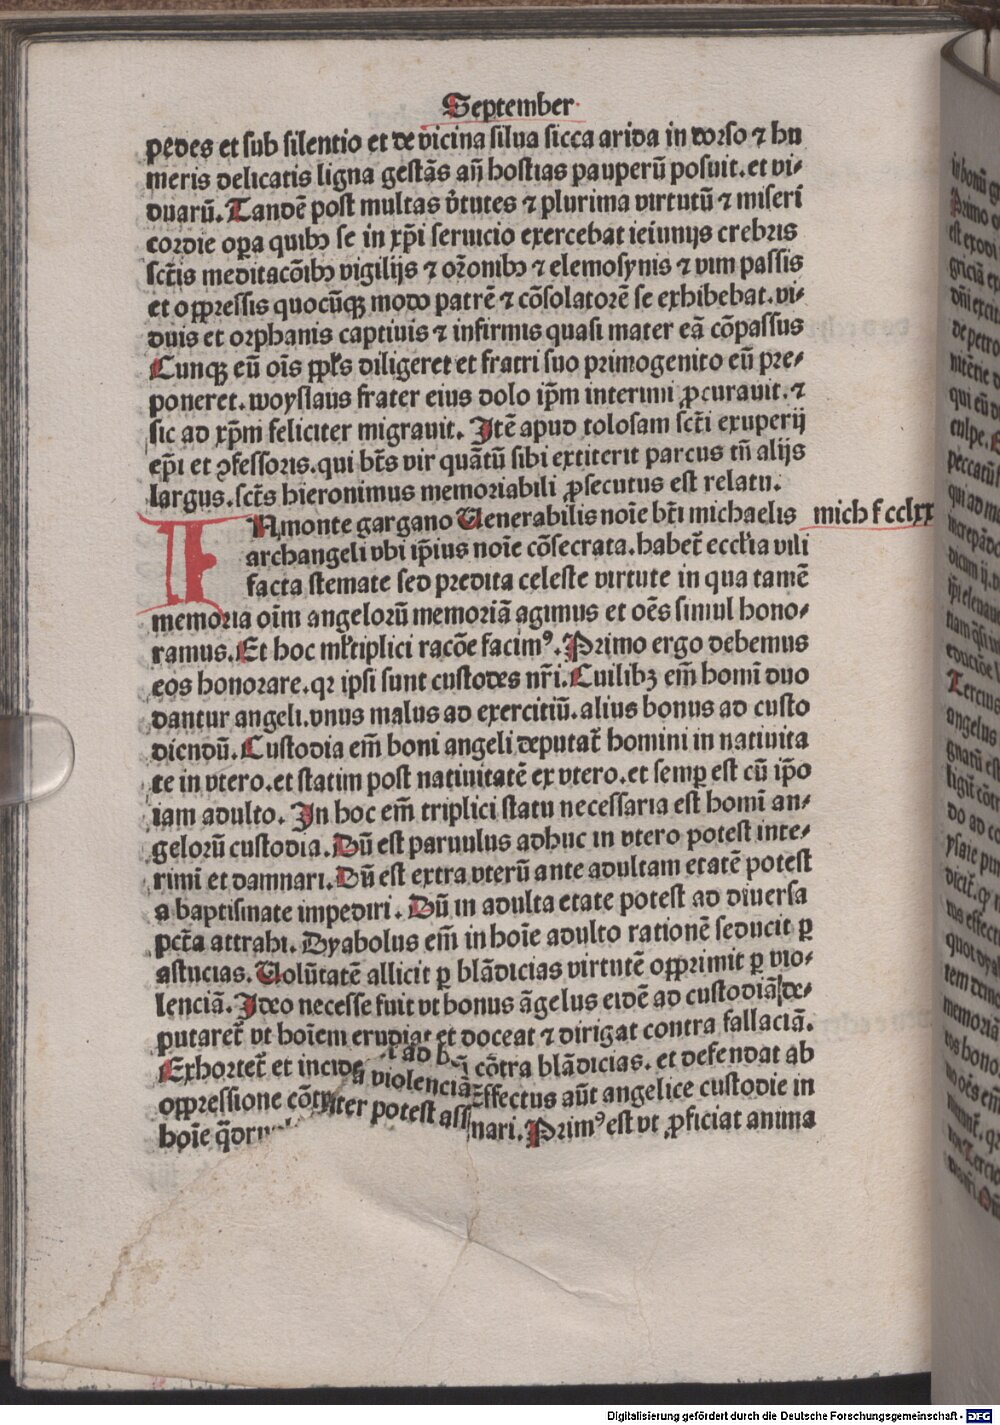 September
pedes et sub silentio et de vicina silua sicca arida in dorso ⁊ hu
meris delicatis ligna gestãs añ hostias pauperũ posuit. et vi-
duarũ. Tandẽ post multas v̓tutes ⁊ plurima virtutũ ⁊ miseri
cordie opa quibꝫ se in xp̄i seruicio exercebat ieiunijs crebris
sct̄is meditacõibꝫ vigilijs ⁊ or̄onibꝫ ⁊ elemosynis ⁊ vim passis
et oppressis quocũqꝫ modo patrẽ ⁊ cõsolatorẽ se exhibebat. vi-
duis et orphanis captiuis ⁊ infirmis quasi mater eã cõpassus
Cunqꝫ eũ oĩs ppl̄s diligeret et fratri suo primogenito eũ pre-
poneret. woyslaus frater eius dolo ip̄m interimi ꝓcurauit. ⁊
sic ad xp̄m feliciter migrauit. Itẽ apud tolosam sct̄i exuperij
ep̄i et ꝯfessoris. qui bt̄s vir quãtũ sibi extiterit parcus tñ alijs
largus. sct̄s hieronimus memoriabili ꝓsecutus est relatu.
IN monte gargano Venerabilis noĩe bt̄i michaelis mich f cclxx
archangeli vbi ip̄ius noĩe cõsecrata. habet̄ eccl̄ia vili
facta stemate sed predita celeste virtute in qua tamẽ
memoria oĩm angelorũ memoriã agimus et oẽs simul hono-
ramus. Et hoc ml̄tiplici racõe facimꝰ. Primo ergo debemus
eos honorare. qꝛ ipsi sunt custodes nr̄i. Cuilibꝫ em̄ homĩ duo
dantur angeli. vnus malus ad exercitiũ. alius bonus ad custo
diendũ. Custodia em̄ boni angeli deputat̄ homini in natiuita
te in vtero. et statim post natiuitatẽ ex vtero. et semp est cũ ip̄o
iam adulto. In hoc em̄ triplici statu necessaria est homĩ an-
gelorũ custodia. Dũ est paruulus adhuc in vtero potest inte-
rimĩ et damnari. Dũ est extra vterũ ante adultam etatẽ potest
a baptismate impediri. Dũ in adulta etate potest ad diuersa
pct̄a attrahi. Dyabolus em̄ in hoĩe adulto rationẽ seducit ꝑ
astucias. Volũtatẽ allicit ꝑ blãdicias virtutẽ opprimit ꝑ vio-
lenciã. Ideo necesse fuit vt bonus ãgelus eidẽ ad custodiã de-
putaret̄ vt hoĩem erudiat et doceat ⁊ dirigat contra fallaciã.
Exhortet̄ et incide t ad b cõtra blãdicias. et defendat ab
oppressione cõt a violenciã Effectus aũt angelice custodie in
hoĩe iter potest ass nari. Primꝰ est vt ꝓficiat anima
Digitalisierung gefördert durch die Deutsche Forschungsgemeinschaft - DFG